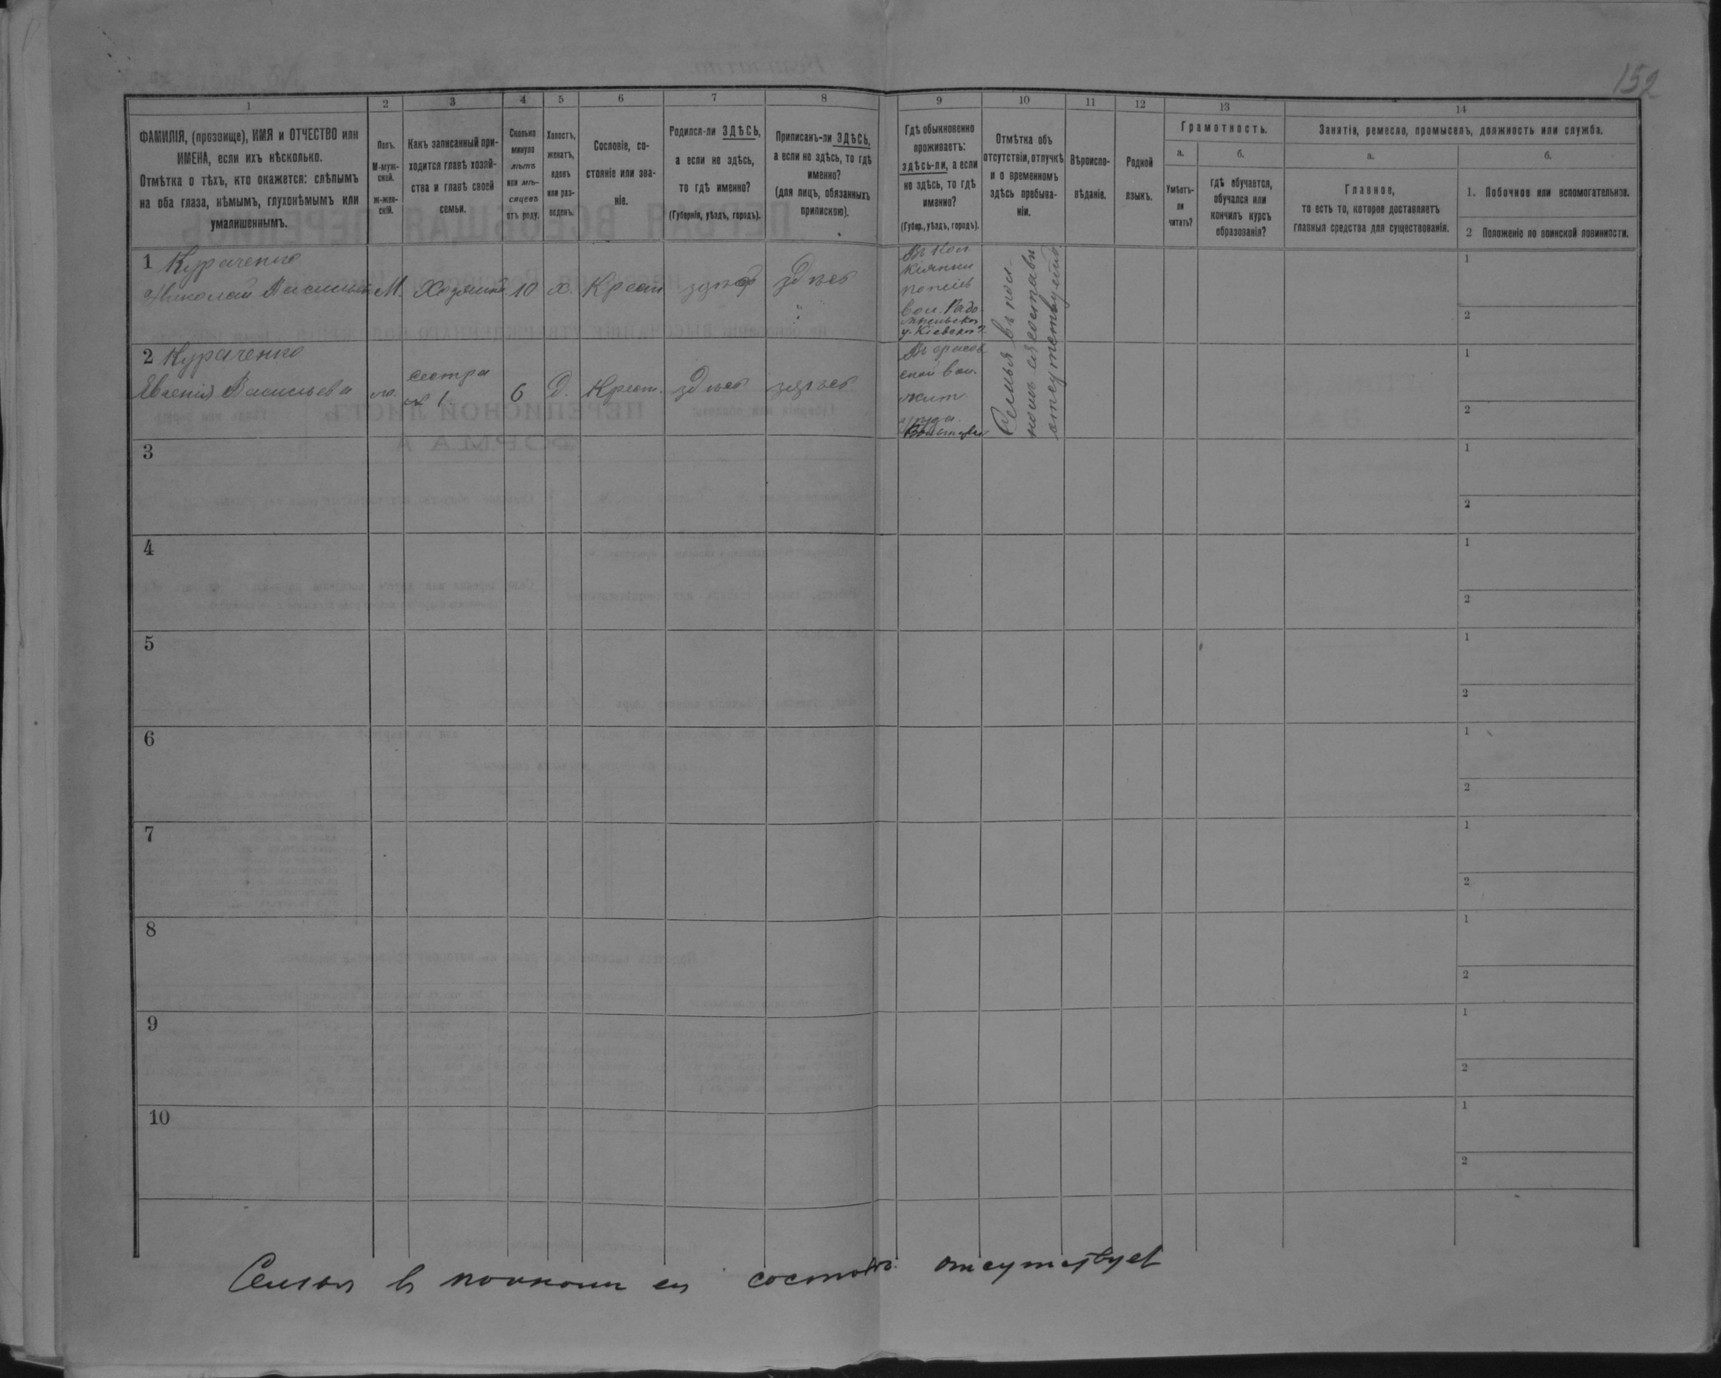 152
1
2
3
4
5
6
7
8
9
10
11
12
13
14
ФАМИЛІЯ, (прозвище), ИМЯ и ОТЧЕСТВО или
ИМЕНА, если ихъ нѣсколько.
Отмѣтка о тѣхъ, кто окажется: слѣпымъ
на оба глаза, нѣмымъ, глухонѣмымъ или
умалишеннымъ.
Полъ.
М-муж-
ской.
ж-жен-
скій.
Какъ записанный при-
ходится главѣ хозяй-
ства и главѣ своей
семьи.
Сколько
минуло
лѣтъ
или мѣ-
сяцевъ
отъ роду.
Холостъ,
женатъ,
вдовъ
или раз-
веденъ.
Сословіе, со-
стояніе или зва-
ніе.
Родился-ли ЗДѢСЬ,
а если не здѣсь,
то гдѣ именно?
(Губернія, уѣздъ, городъ).
Приписанъ-ли ЗДѢСЬ,
а если не здѣсь, то гдѣ
именно?
(для лицъ, обязанныхъ
припискою).
Гдѣ обыкновенно
проживаетъ:
здѣсь-ли, а если
не здѣсь, то гдѣ
именно?
(Губер., уѣздъ, городъ).
Отмѣтка объ
отсутствіи, отлучкѣ
и о временномъ
здѣсь пребыва-
ніи.
Вѣроиспо-
вѣданіе.
Родной
языкъ.
Грамотность.
а.
Умѣетъ-
ли
читать?
б.
гдѣ обучается,
обучался или
кончилъ курсъ
образованія?
Занятія, ремесло, промыселъ, должность или служба.
а.
Главное,
то есть то, которое доставляетъ
главныя средства для существованія.
б.
1. Побочное или вспомогательное.
2 Положеніе по воинской повинности.
1 Кураченко
Николай
М. Хозяинъ 10 х. Крест. здѣсь здѣсь
вол. Радо
у. Кіевской
Семья въ пол-
номъ ея составѣ
отсутствуетъ
1
2
2 Кураченко
Евгенія Васильева
сестра
к 1 6 Д. Крест. здѣсь здѣсь
1
2
3
1
2
4
1
2
5
1
2
6
1
2
7
1
2
8
1
2
9
1
2
10
1
2
Семья в полном ея составѣ отсутствует